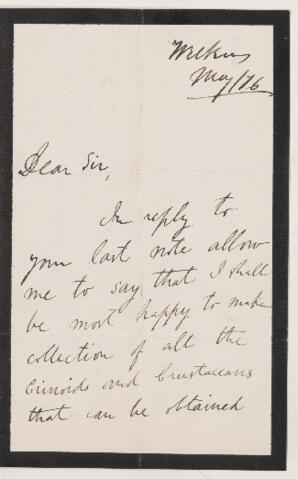 May/76
Dear Sir,
In reply to
your last note allow
me to say that I shall
be most happy to make
collection of all the
Crinoids and Crustaceans
that can be obtained